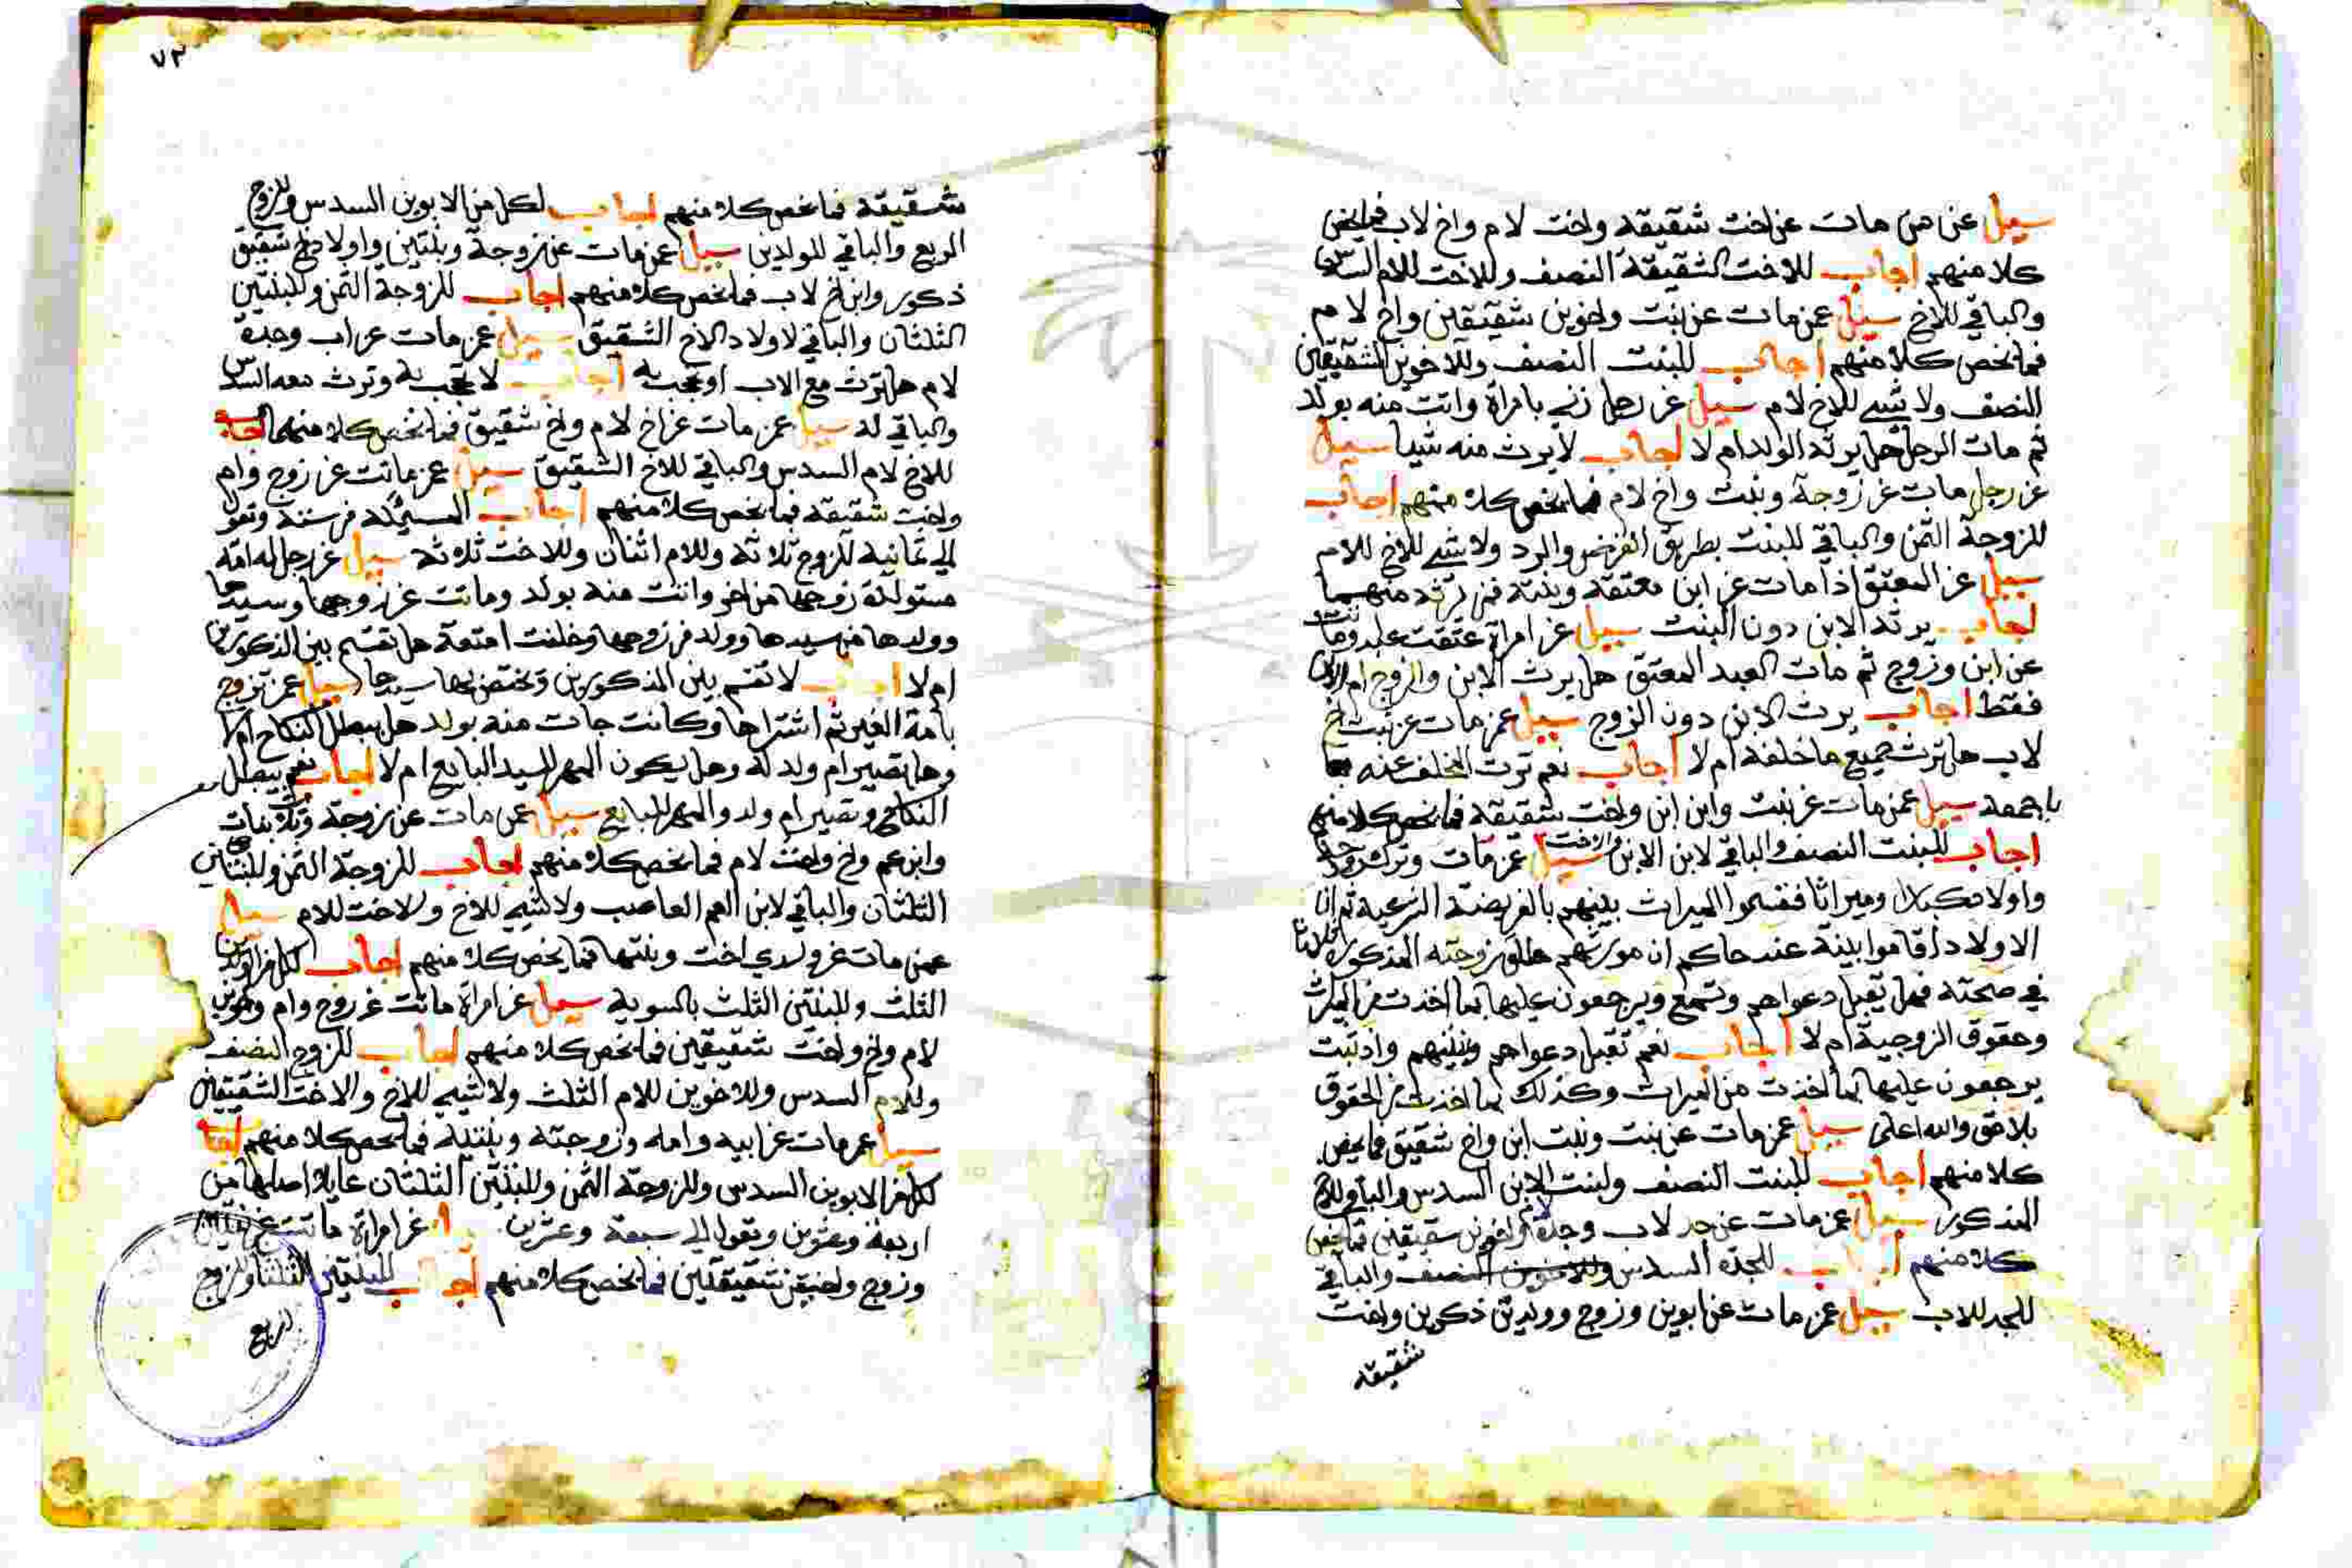 سيل عن من مات عن اخت شقيقة واخت لام واخ لاب فما يخص
كلا منهم اجاب للاخت الشقيقة النصف وللاخت للام السدس
والباقي للاخ سيل عمن مات عن بنت واخوين شقيقين واخ لام
فما يخص كلا منهم اجاب للبنت النصف وللاخوين الشقيقين
النصف ولا شي للاخ لام سيل عن رجل زني بامراة واتت منه بولد
ثم مات الرجل هل يرثه الولد ام لا اجاب لا يرث منه شيا سيل
عن رجل مات عن زوجة وبنت واخ لام فما يخص كلا منهم اجاب
للزوجة الثمن والباقي للبنت بطريق الفرض والرد ولا شي للاخ للام
سيل عن المعتق اذا مات عن ابن معتقه وبنته فمن يرثه منهما
اجاب يرثه الابن دون البنت سيل عن امراة عتقت عبد وماتت
عن ابن وزوج ثم مات العبد المعتق هل يرث الابن والزوج ام الابن
فقط اجاب يرث الابن دون الزوج سيل عمن مات عن بنت اخ
لاب هل ترث جميع ما خلفه ام لا اجاب نعم ترث المخلف عنه
باجمعه سيل عمن مات عن بنت وابن ابن واخت شقيقة فما يخص كلا منهم
اجاب للبنت النصف والباقي لابن الابن سيل عمن مات وترك زوجة
واولاد وميراثا فقسموا الميراث بينهم بالفريضة الشرعية ثم ان
الاولاد اقاموا بينة عند حاكم ان مورثهم طلق زوجته المذكورة ثلاثا
في صحته فهل تقبل دعواهم وتسمع ويرجعون عليها بما اخذت من الميراث
وحقوق الزوجية ام لا اجاب نعم تقبل دعواهم وبينتهم واذ ثبت
يرجعون عليها بما اخذت من الميراث وكذلك بما اخذت من الحقوق
بلا حق والله اعلم سيل عمن مات عن بنت وبنت ابن واخ شقيق فما يخص
كلا منهم اجاب للبنت النصف ولبنت الابن السدس والباقي للاخ
المذكور سيل عمن مات عن جد لاب وجدة لام واخوين شقيقين فما يخص
كلا منهم اجاب للجدة السدس وللاخوين النصف والباقي
للجد للاب سيل عمن مات عن ابوين وزوج وولدين ذكرين واخت
شقيقه
٧٢
شقيقة فما يخص كلا منهم اجاب لكل من الابوين السدس وللزوج
الربع والباقي للولدين سيل عمن مات عن زوجة وبنتين واولاد اخ شقيق
ذكور وابن اخ لاب فما يخص كلا منهم اجاب للزوجة الثمن وللبنتين
الثلثان والباقي لاولاد الاخ الشقيق سيل عمن مات عن اب وجدة
لام هل ترث مع الاب او تحجب به اجاب لا تحجب به وترث معه السدس
والباقي له سيل عمن مات عن اخ لام واخ شقيق فما يخص كلا منهما اجاب
للاخ لام السدس والباقي للاخ الشقيق سيل عمن ماتت عن زوج وام
واخت شقيقة فما يخص كلا منهم اجاب المسيلة من ستة وتعول
الي ثمانية للزوج ثلاثة وللام اثنان وللاخت ثلاثة سيل عن رجل له امة
مستولدة زوجها من اخر واتت منه بولد وماتت عن زوجها وسيدها
وولدها من سيدها وولد من زوجها وخلفت امتعة هل تقسم بين المذكورين
ام لا اجاب لا تقسم بين المذكورين وتختص بها سيدها سيل عمن تزوج
بامة الغير ثم اشتراها وكانت جات منه بولد هل يبطل النكاح ام لا
وهل تصير ام ولد له وهل يكون المهر للسيد البايع ام لا اجاب نعم يبطل
النكاح وتصير ام ولد والمهر للبايع سيل عمن مات عن زوجة وثلاث بنات
وابن عم واخ واخت لام فما يخص كلا منهم اجاب للزوجة الثمن وللبنتين
الثلثان والباقي لابن العم العاصب ولا شي للاخ والاخت للام سيل
عمن مات عن ولدي اخت وبنتها فما يخص كلا منهم اجاب لكل من الولدين
الثلث وللبنتين الثلث بالسوية سيل عن امراة ماتت عن زوج وام واخوين
لام واخ واخت شقيقين فما يخص كلا منهم اجاب للزوج النصف
وللام السدس وللاخوين للام الثلث ولا شي للاخ والاخت الشقيقين
سيل عمن مات عن ابيه وامه وزوجته وبنتيه فما يخص كلا منهم اجاب
لكل من الابوين السدس وللزوجة الثمن وللبنتين الثلثان عايلة اصلها من
اربعة وعشرين وتعول الي سبعة وعشرين عن امراة ماتت عن بنتين
وزوج واختين شقيقتين فما يخص كلا منهم اجاب للبنتين الثلثان وللزوج
الربع